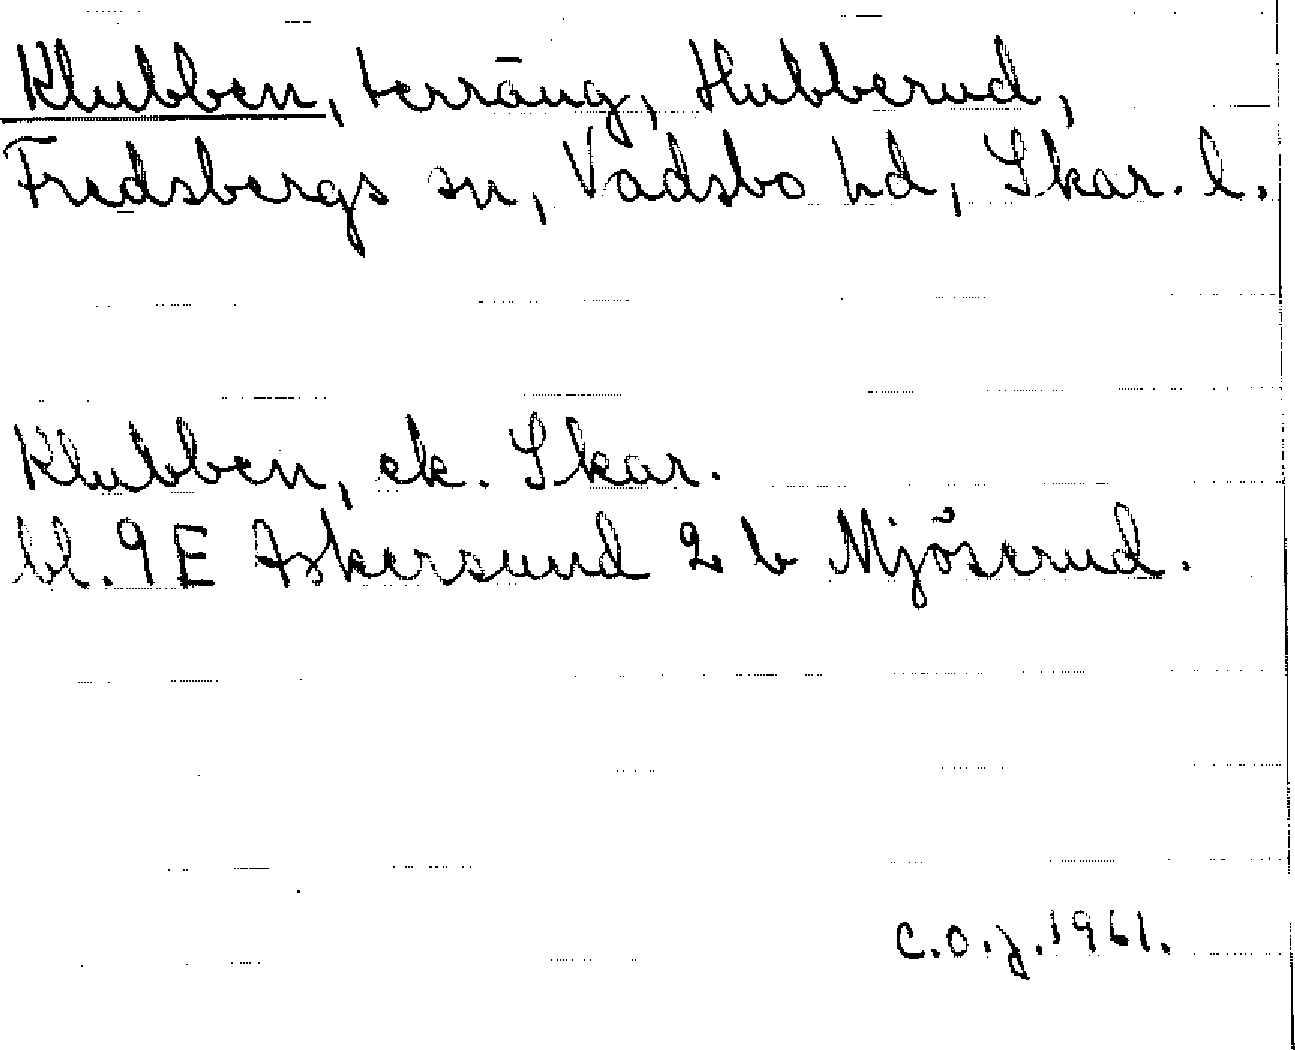 Klubben, terräng, Hubberud,
Fredsbergs sn, Vadsbo hd, Skar. l.
Klubben, ek. Skar.
bl. 9 E Askersund 2 b Mjöserud.
C.O.J. 1961.